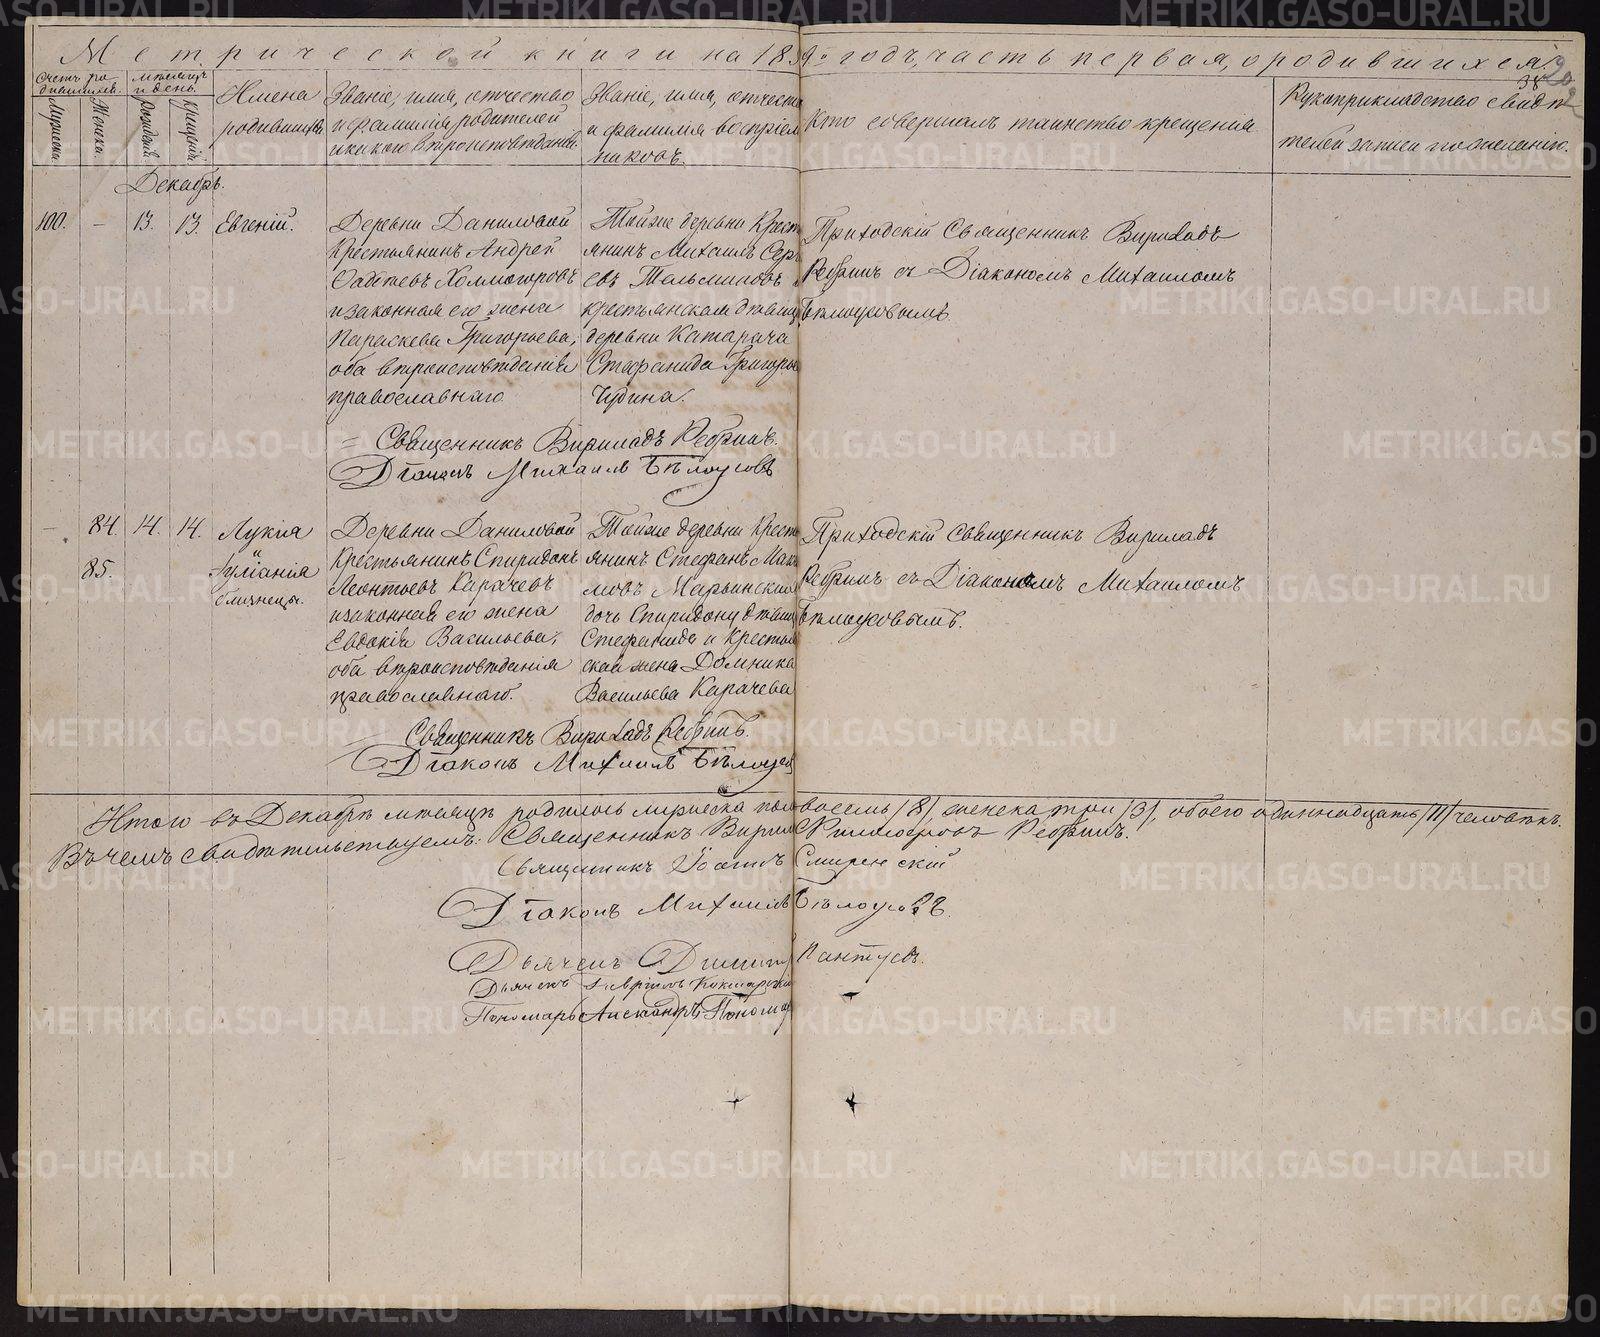 Метрической книги на 18 9й годъ, часть первая, о родившихся.
38
Счетъ родившихся.
Мужеска.
Женска.
Мѣсяцъ и день.
Рожденія.
Крещенія.
Имена
родившихся
Званіе, имя, отчество
и фамилія родителей
и какого вѣроисповѣданія.
Званіе, имя, отчество
и фамилія воспріем
никовъ.
Кто совершалъ таинство крещенія.
Рукоприкладство свидѣ
телей записи по желанію.
Декабрь.
100. — 13. 13. Евгеній.
Деревни Даниловой
Крестьянинъ Андрей
Холмогоровъ
и законная его жена
Параскева Григорьева,
оба вѣроисповѣданія
православнаго.
Тойже деревни Крест
янинъ Михаилъ Сер
евъ Тельминовъ
крестьянская дѣвица
деревни Катарача
Стефанида Григорье
Чудина.
Приходскій Священникъ
Ребринъ съ Діакономъ Михаиломъ
Бѣлоусовымъ.
Священникъ Ребринъ.
Діаконъ Михаилъ Бѣлоусовъ
— 84. 14. 14. Лукія
85. Іуліанія
близнецы.
Деревни Даниловой
Крестьянинъ Спиридонъ
Леонтьевъ Карачевъ
и законная его жена
Евдокія Васильева,
оба вѣроисповѣданія
православнаго.
Тойже деревни Крестъ
янинъ Стефанъ Мак
мовъ Марьинских
дочь Спиридону дѣвица
Стефанида и Крестьян
ская жена Домника
Васильева Карачева
Приходскій священникъ
Ребринъ съ Діакономъ Михаиломъ
Бѣлоусовымъ.
Священникъ Ребринъ.
Діаконъ Михаилъ Бѣлоусов
Итого въ Декабрѣ мѣсяцѣ родилось мужеска пола восемь /8/, женска три /3/, обоего одиннадцать /11/ человѣкъ.
Въ чемъ свидѣтельствуемъ: Священникъ Ребринъ.
Священникъ Іоаннъ Смиренскій
Діаконъ Михаилъ Бѣлоусовъ.
Дьячекъ Димитр Пантуевъ.
Дьячекъ Гавріилъ Кокшарскій
Пономарь Александръ Пономар
METRIKI.GASO-URAL.RU